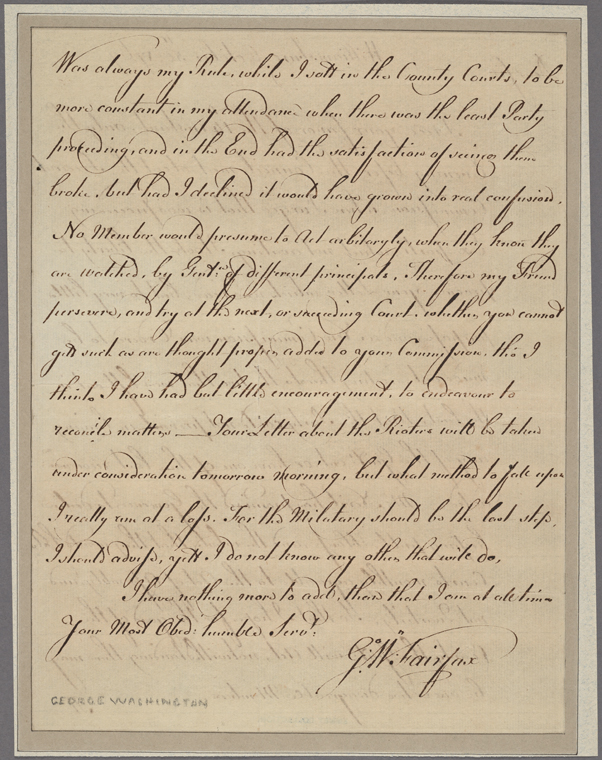 Was always my Rule, while I satt in the County Courts, to be
more constant in my attendance when there was the least Party
proceeding, and in the End had the satisfaction of seeing them
broke. but had I declined it would have grown into real confusion.
No Member would presume to Act arbitoryly, when they know they
are watched, by Gentn. of different principals, Therefore my Friend
persevere, and try at the next, or suceeding Court. whither you cannot
gett such as are thought proper added to your Commission. tho I
think I have had but little encouragement, to endeavour to
reconcile matters — Your Letter about the Rioters will be taken
under consideration tomorrow morning, but what method to fall upon
I really am at a loss. For the Military should be the last step,
I should advise, yett I do not know any other that will do,
I have nothing more to add, than that I am at all times
Your Most Obedt. humble Servt.
Go. Wm. Fairfax
GEORGE WASHINGTON